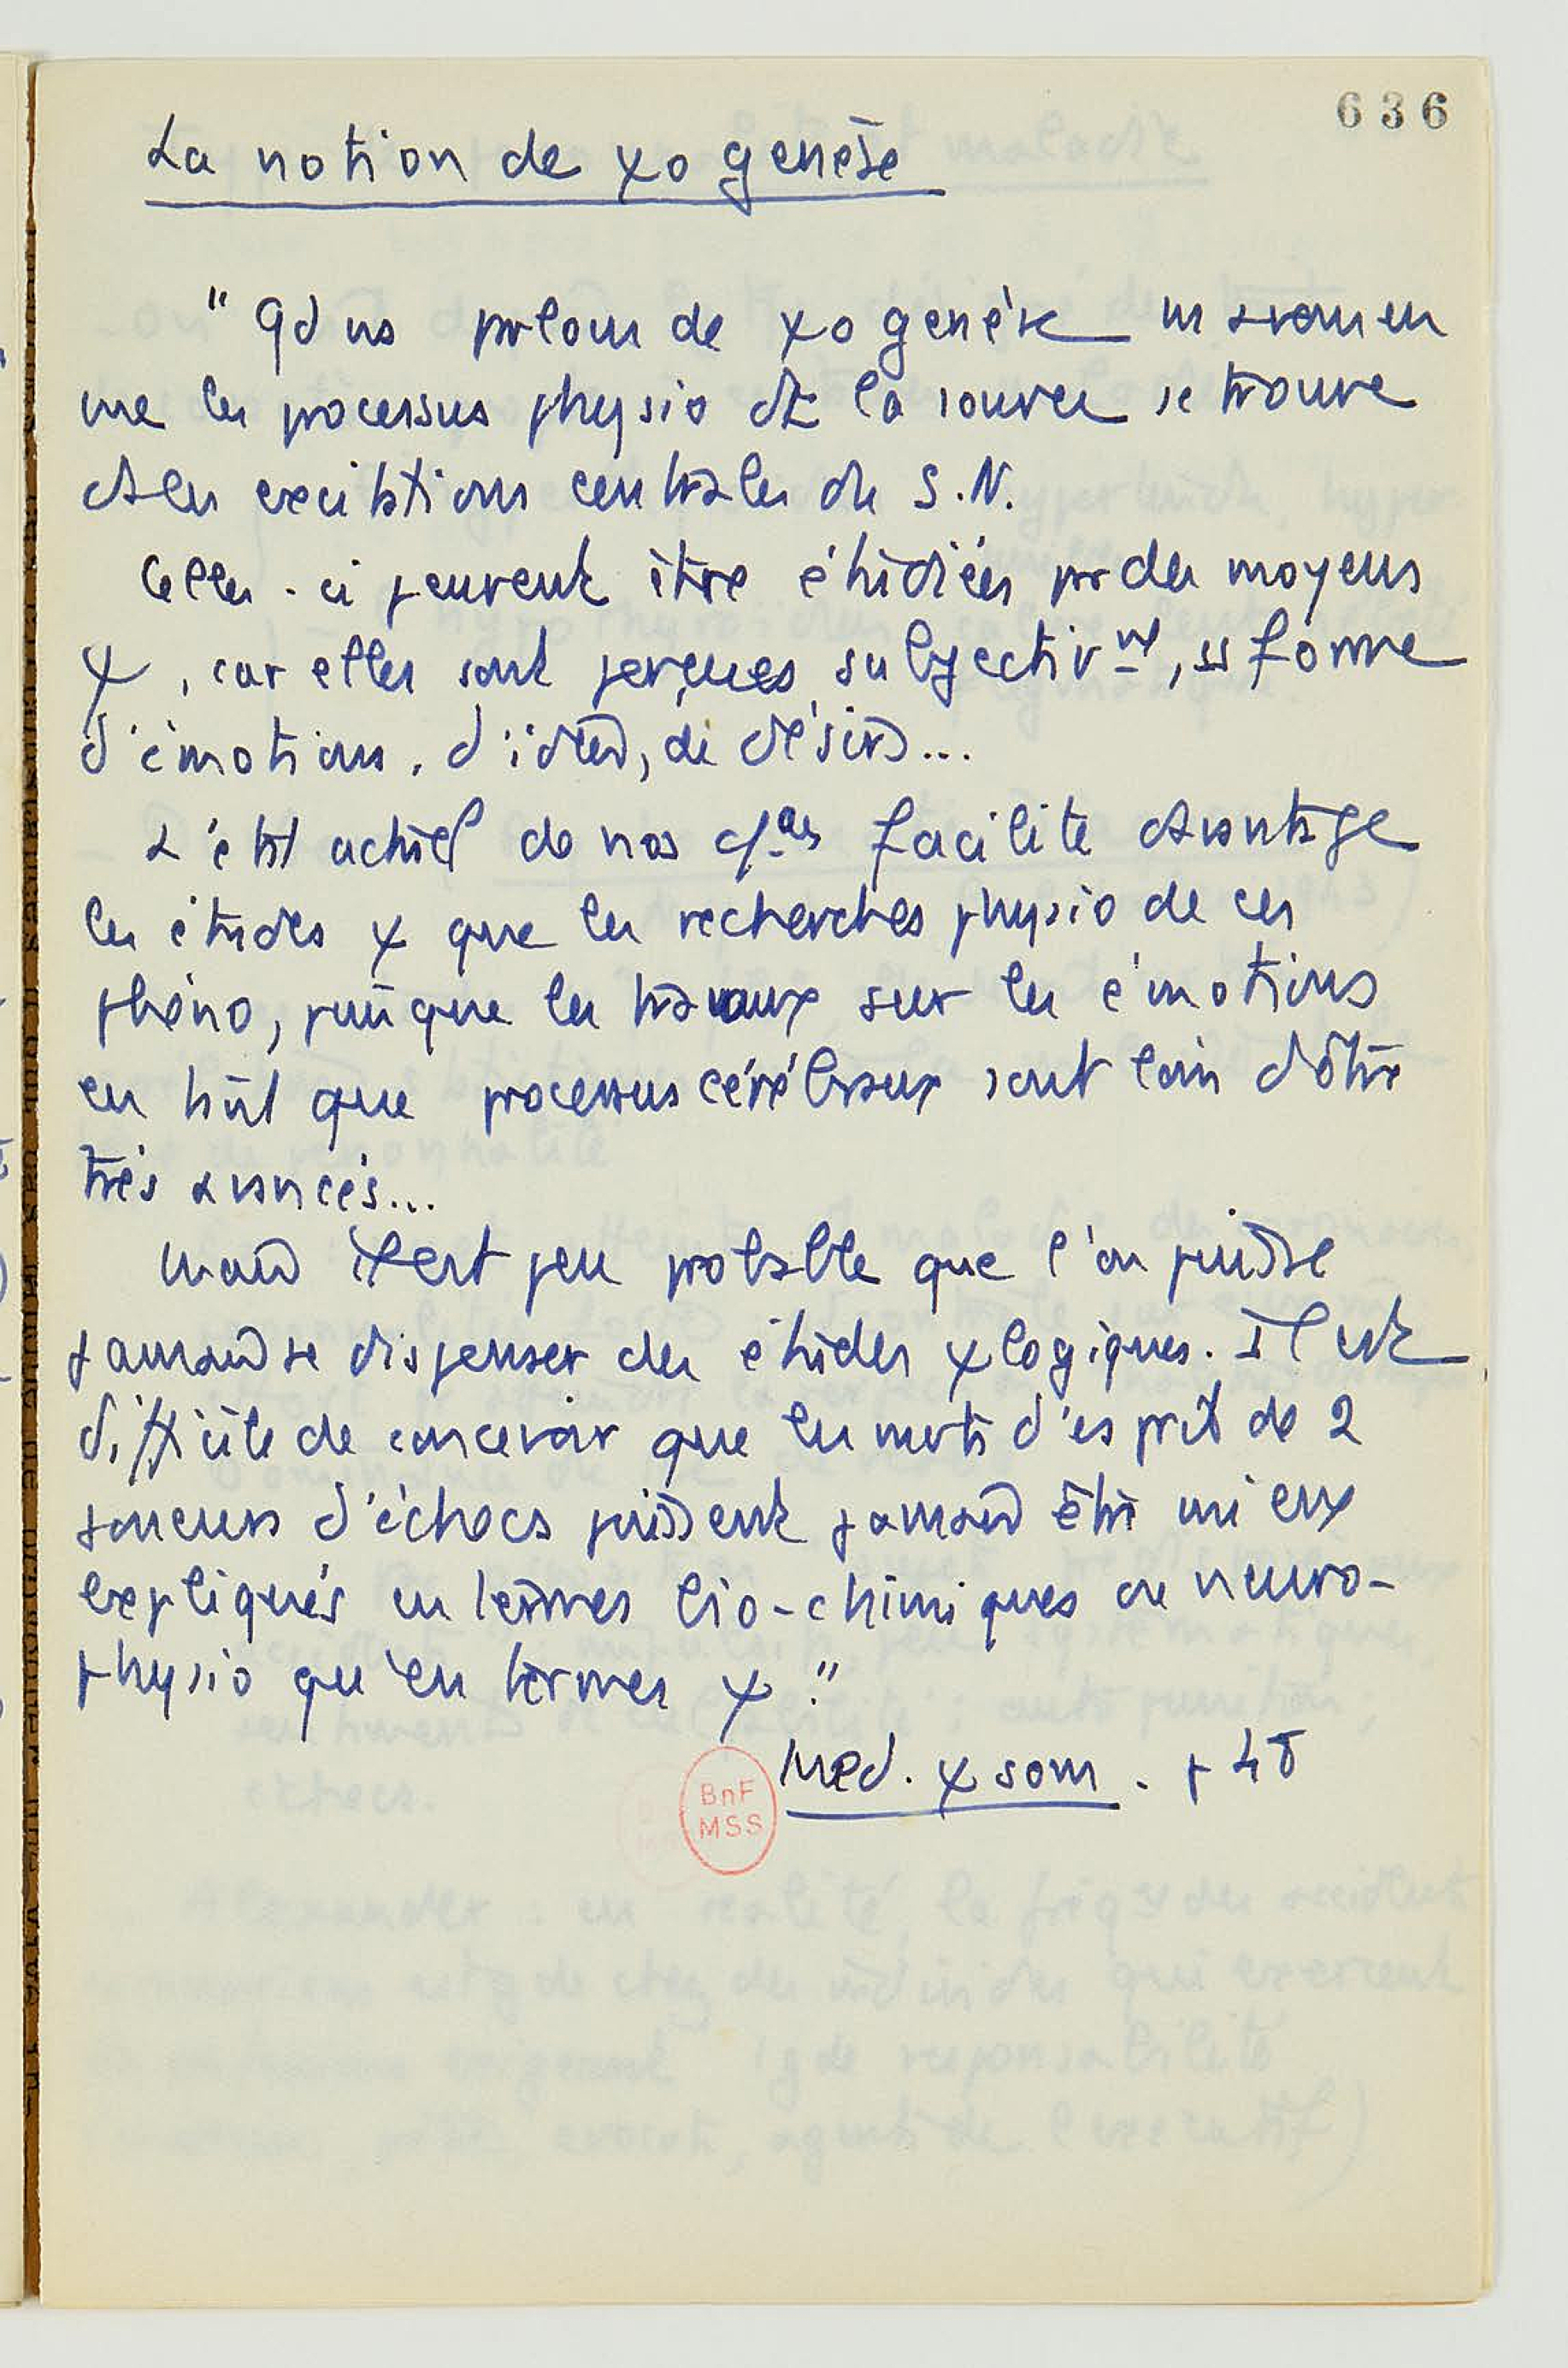 636
La notion de ψogenèse
"Qd ns parlons de ψogenèse ns avons en
vue les processus physio dt la source se trouve
ds les excitations centrales du S.N.
Celles-ci peuvent être étudiées par des moyens
ψ, car elles sont perçues subjectivmt, ss forme
d'émotions, d'idées, de désirs...
L'état actuel de nos cces facilite davantage
les études ψ que les recherches physio de ces
phéno, puisque les travaux sur les émotions
en tant que processus cérébraux sont loin d'être
très avancés...
Mais il est peu probable que l'on puisse
jamais se dispenser des études ψlogiques. Il est
difficile de concevoir que les mots d'esprit de 2
joueurs d'échecs puissent jamais être mieux
expliqués en termes bio-chimiques ou neuro-
physio qu'en termes ψ."
Med. ψsom. p 48
BnF
MSS